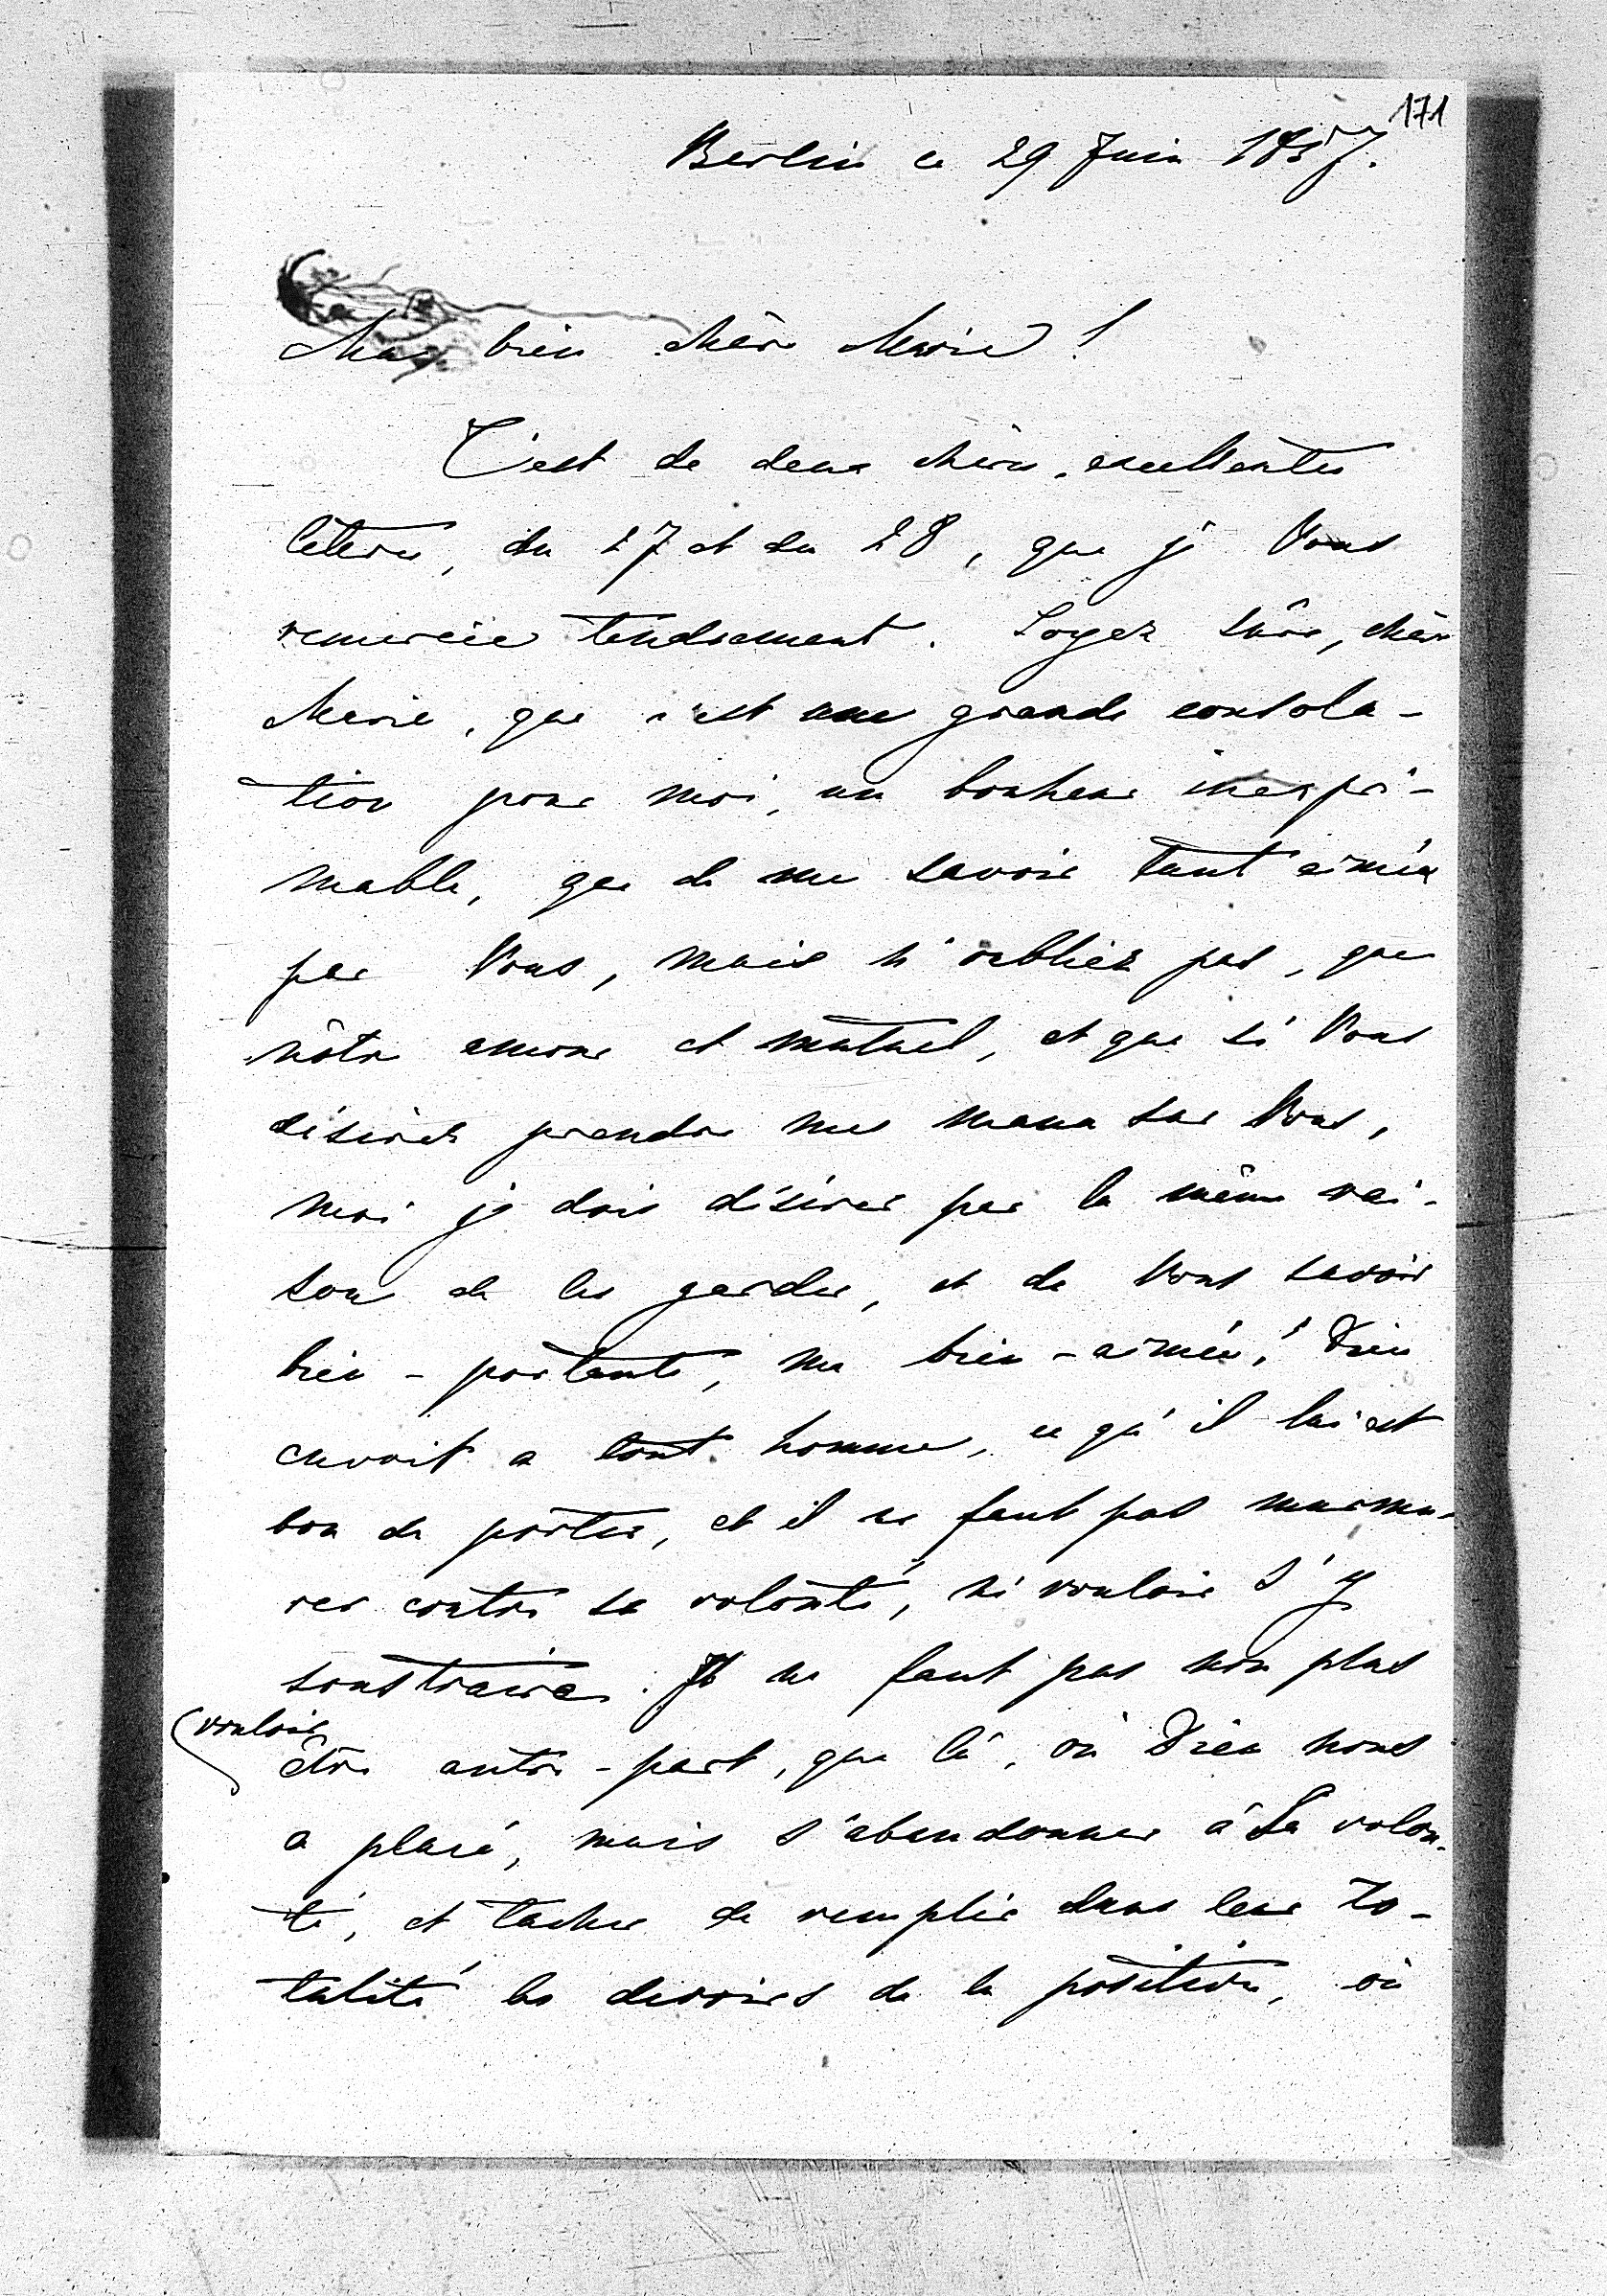 171
Berlin ce 29 Juin 1857.
Ma bien chère Marie !
C'est de deux chères, excellentes
lettres, du 27 et du 28, que je Vous
remercie tendrement. Soyez sûre, chère
Marie, que c'est une grande consola-
tion pour moi, un bonheur inexpri-
mable, que de me savoir tant aimée
par Vous, mais n'oubliez pas, que
nôtre amour et mutuel, et que si Vous
désirez prendre mes maux sur Vous,
moi je dois désirer par la même rai-
son de les garder, et de Vous savoir
bien-portante, ma bien-aimée! Dieu
envoit a tout homme, ce qu'il lui est
bon de porter, et il ne faut pas murmu-
rer contre sa volonté, ni vouloir s'y
soustraire. Il ne faut pas non plus
vouloir
être autre-part, que là, où Dieu nous
a placé, mais s'abandonner à Sa volon-
té, et tacher de remplir dans leur to-
talité les devoirs de la position, où